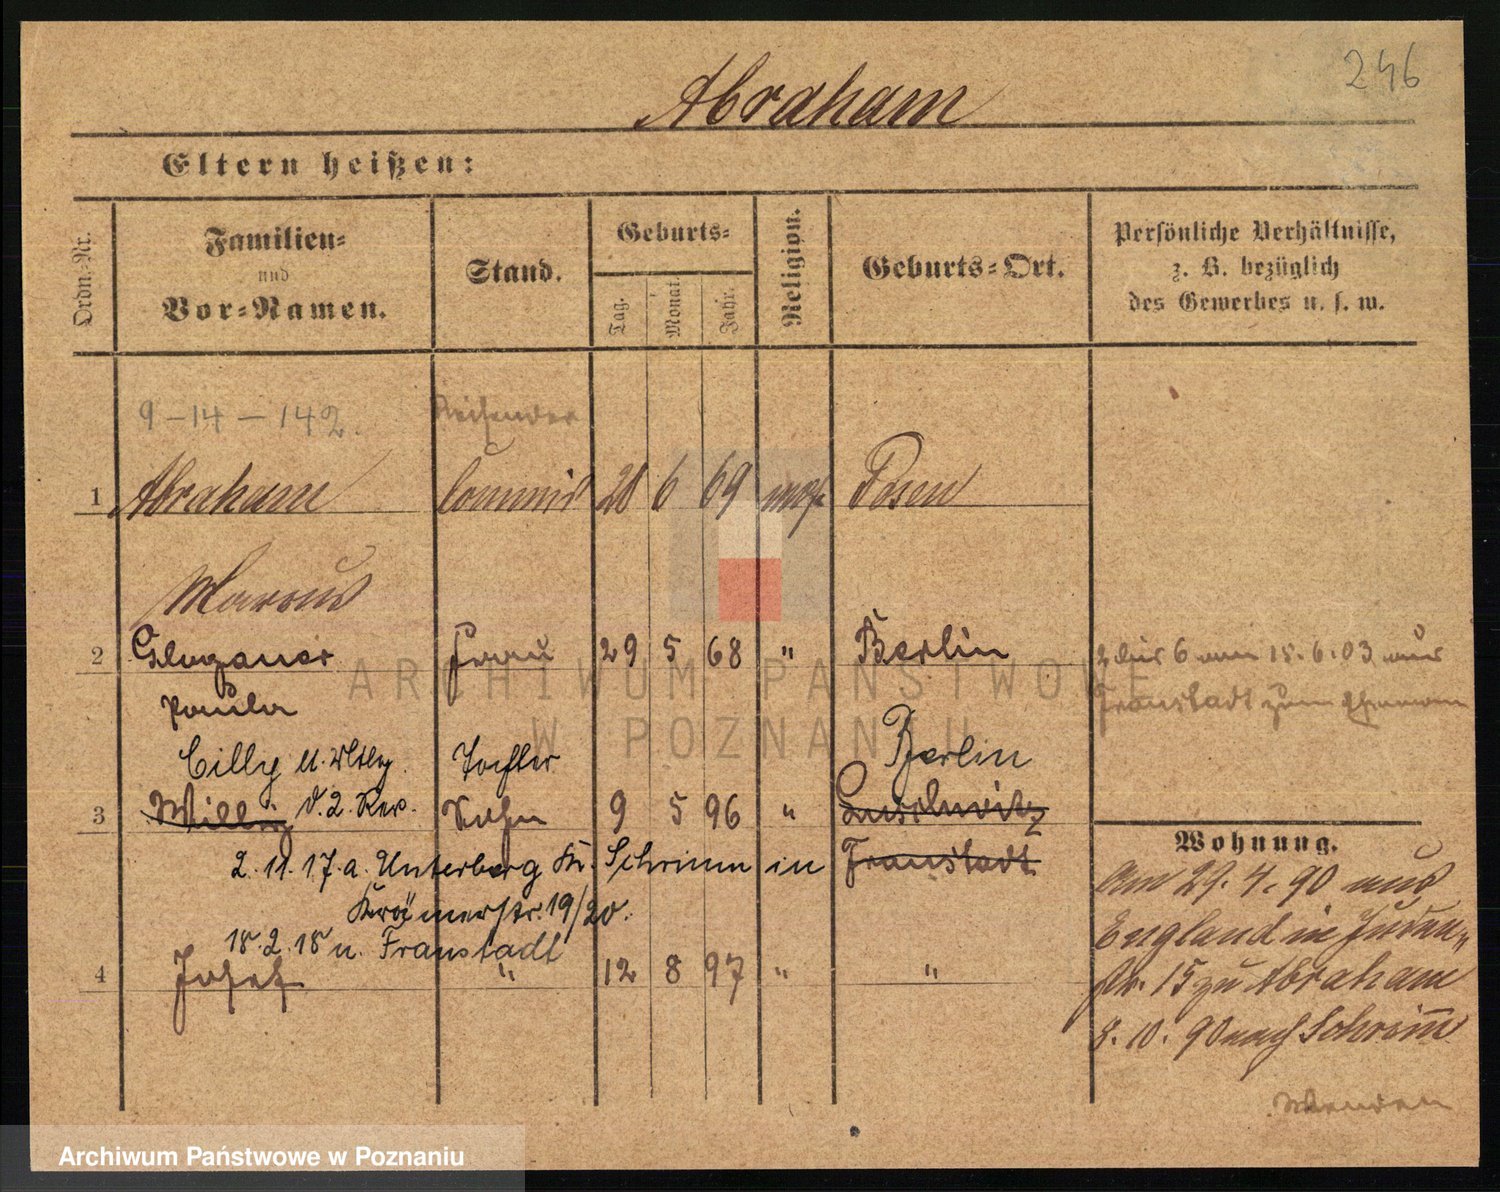 246
Abraham
Eltern heißen:
Ordn.-Nr.
Familien-
und
Vor-Namen.
Stand.
Geburts-
Tag.
Monat
Jahr.
Religion.
Geburts-Ort.
Persönliche Verhältnisse,
z. B. bezüglich
des Gewerbes u. s. w.
9-14-142.
Reisender
1 Abraham Commis 28 6 69 mos. Posen
Marcus
2 Glogauer Frau 29 5 68 " Berlin
Paula
2 bis 6 am 15.6.03 aus
Fraustadt zum Ehemann
Cilly Tochter Berlin
3 Willy Sohn 9 5 96 "
Fraustadt
2.11.17. a. Unterberg Kr. Schrimm in
Krämerstr. 19/20.
18.2.18 n. Fraustadt
4 Josef " 12 8 97 " "
Wohnung.
Am 29.4.90 aus
England in Juden-
str. 15 zu Abraham
8.10.90 nach Schrimm
Wenden
ARCHIWUM PAŃSTWOWE
W POZNANIU
Archiwum Państwowe w Poznaniu